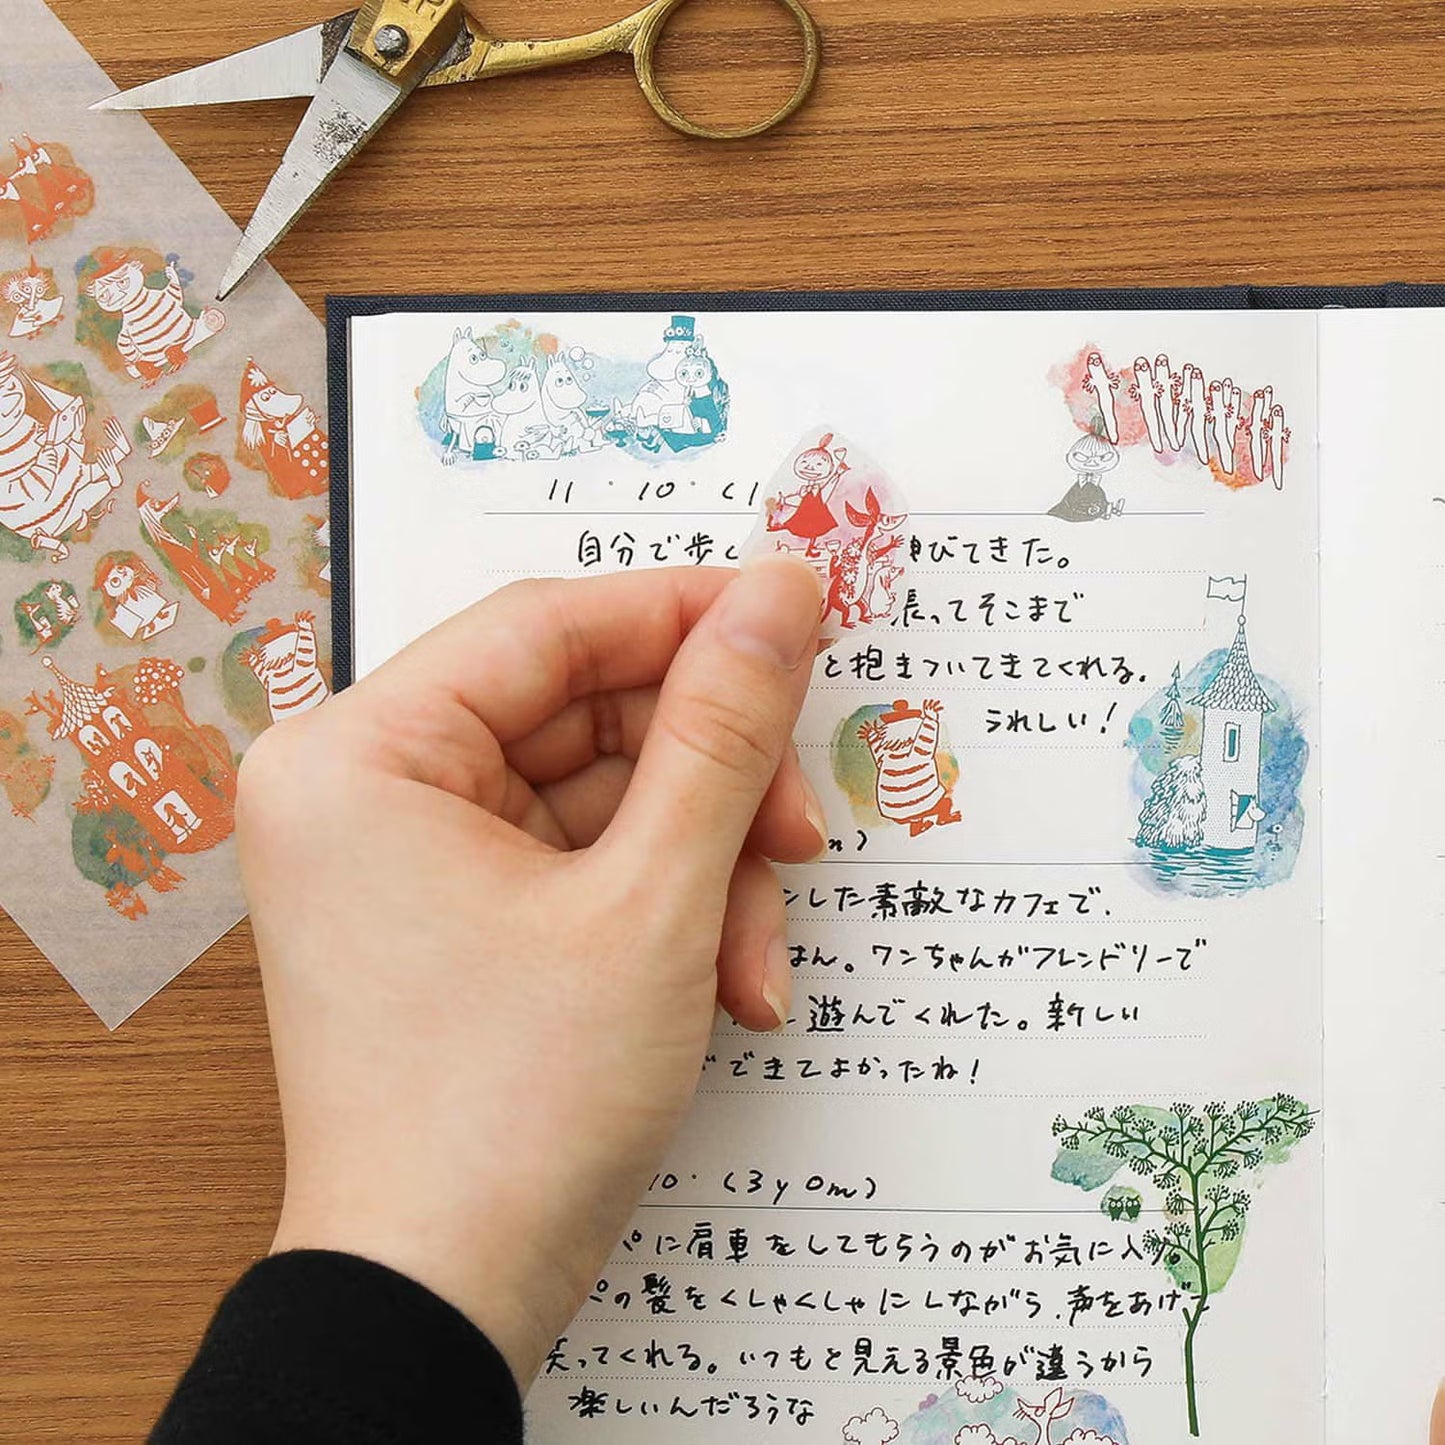 11・10・(1
自分で歩く 伸びてきた。
張ってそこまで
と抱きついてきてくれる。
うれしい!
m)
ンした素敵なカフェで、
はん。ワンちゃんがフレンドリーで
遊んでくれた。新しい
できてよかったね!
10・(3y0m)
パに肩車をしてもらうのがお気に入り。
パの髪をくしゃくしゃにしながら、声をあげて
笑ってくれる。いつもと見える景色が違うから
楽しいんだろうな